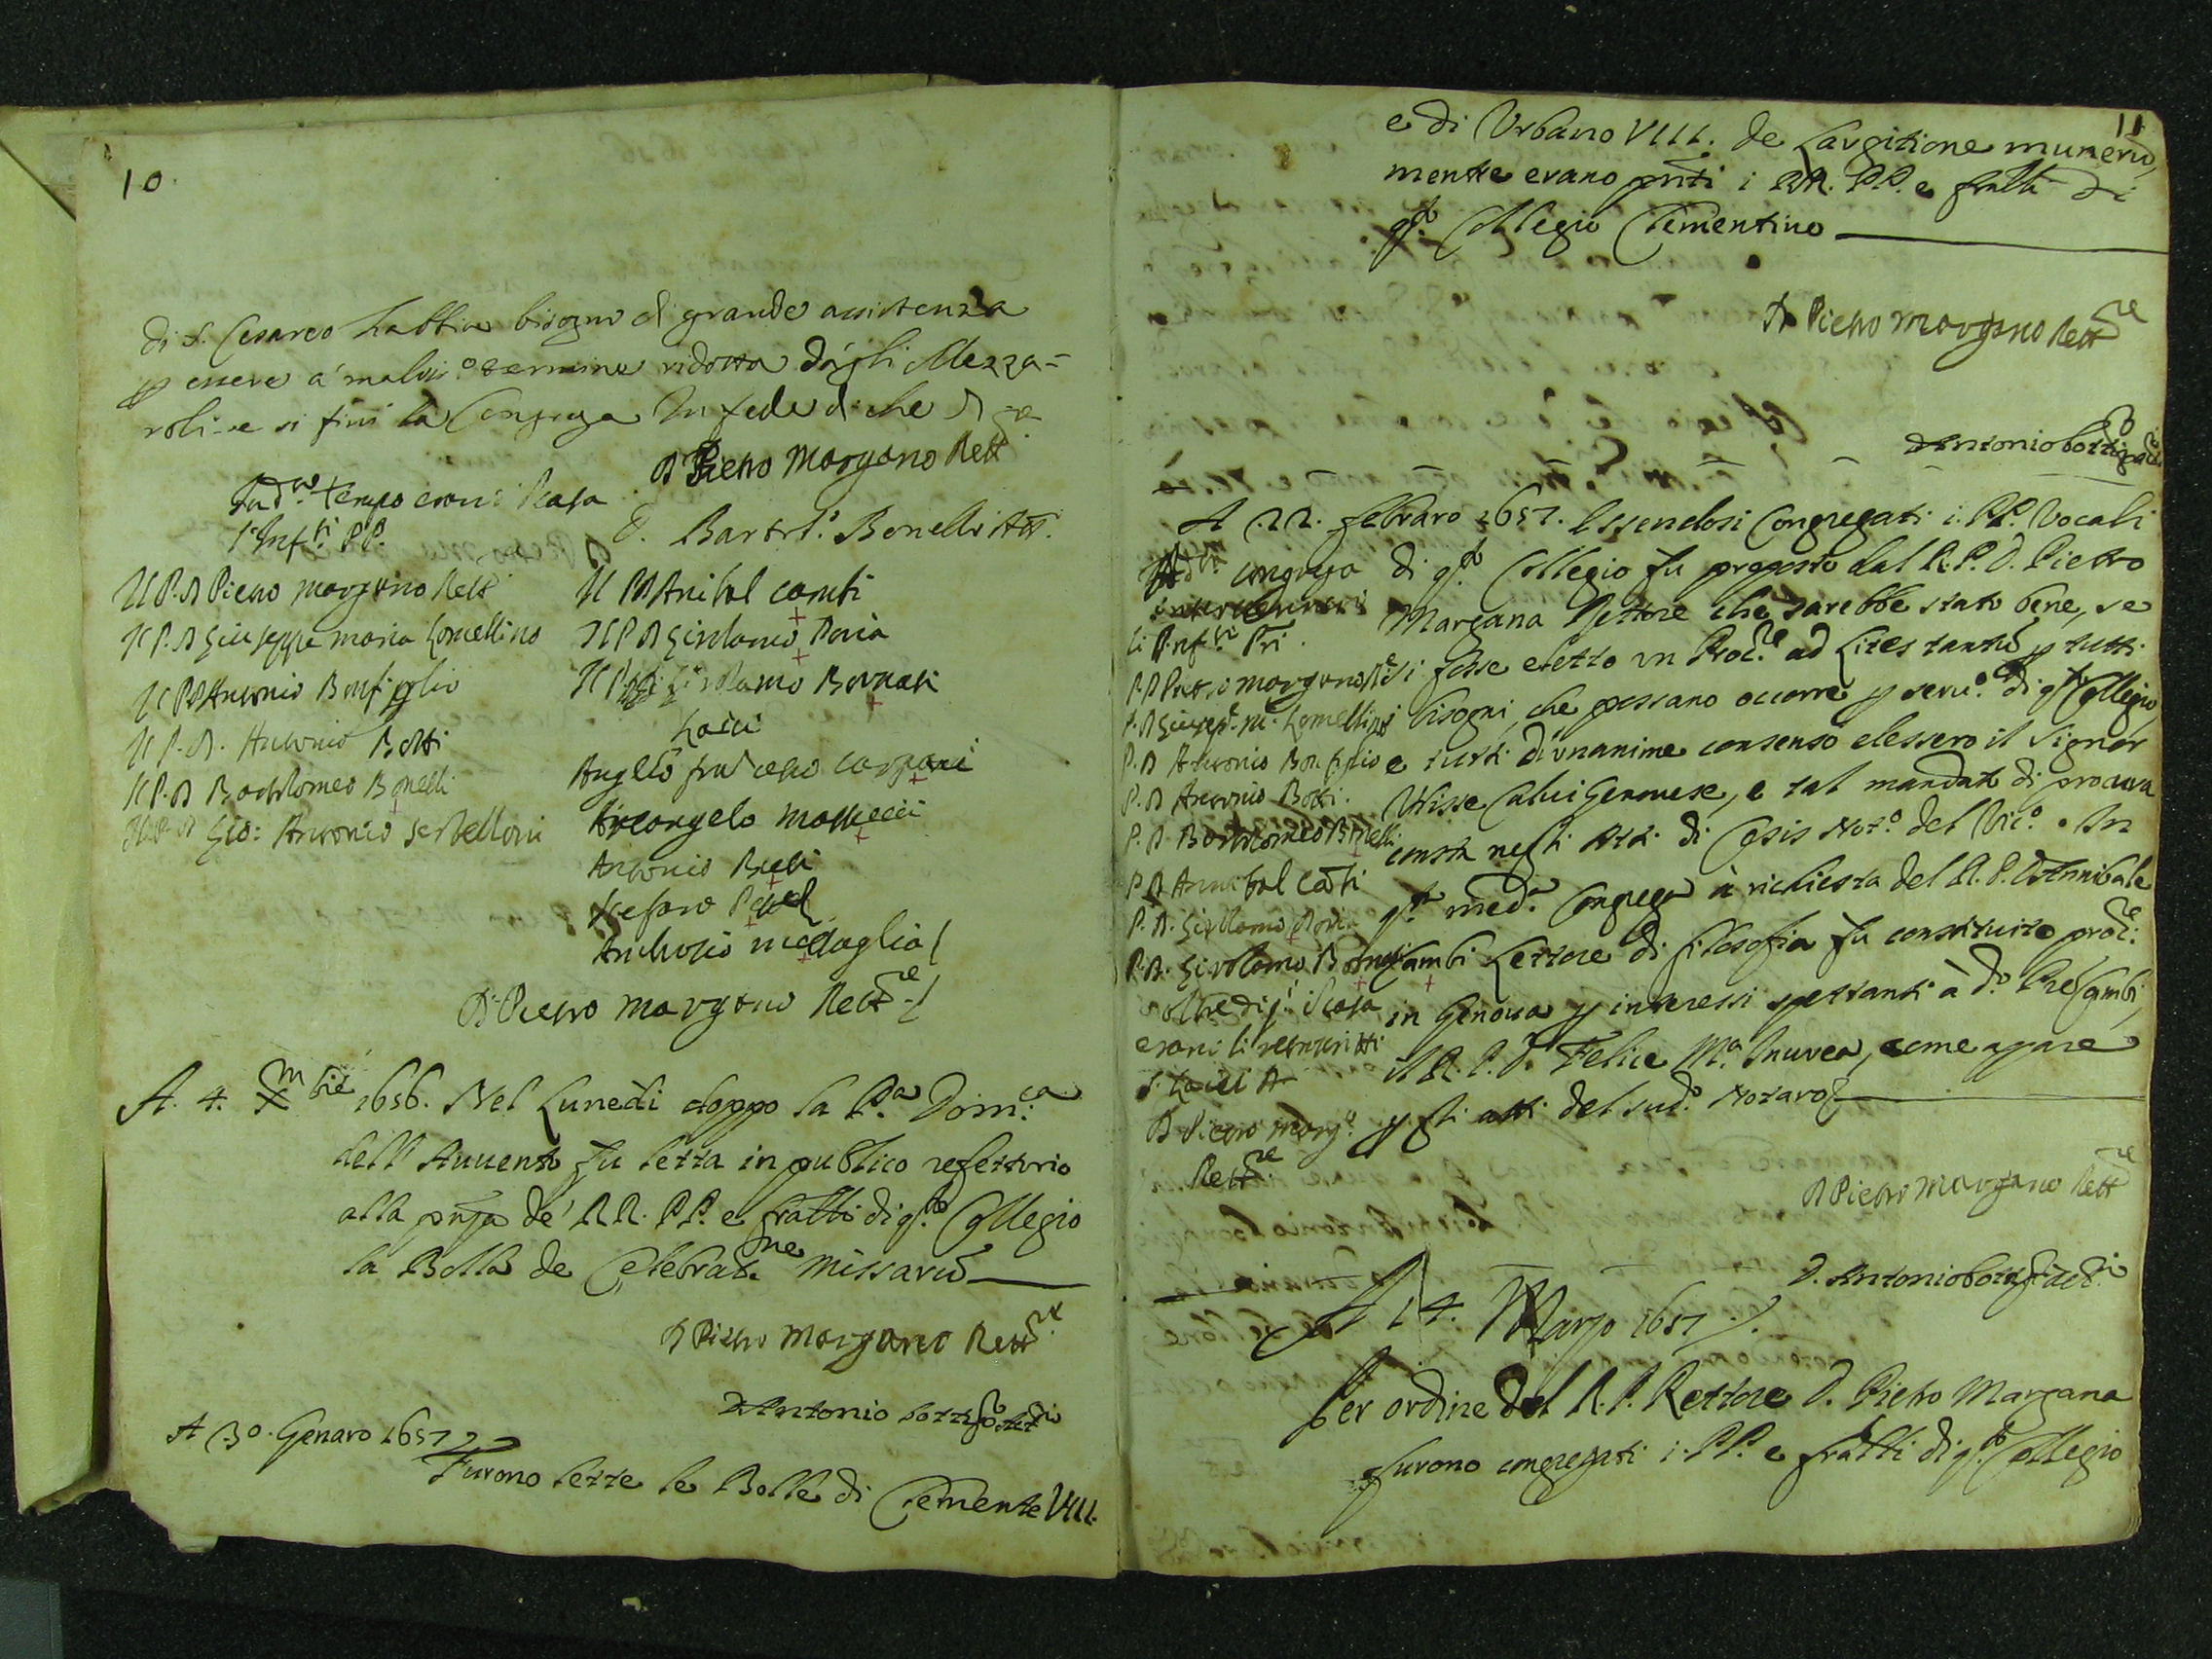 10.
di S. Cesareo habbia bisogno di grande assistenza
p essere a' maliss.º termine ridotta dagli Mezza=
roli - e si finì la Congrega In fede di che
D Pietro Margano Rett.re
In d.º tempo erano i Casa
l'Inf.ti PP.
D. Bartol.º Bonelli Att.
Il P. D Pietro Margano Rett
Il P. D Giuseppe Maria Lomellino
Il P D Antonio Bonfiglio
Il P. D. Antonio Botti
Il P. D Bartolomeo Bonelli
Il P. D Gio: Antonio Serbelloni
Il P D Anibal Cambi
Il P D Girolamo Doria
Il P D Girolamo Bornati
Laici
Angelo
Arcangelo
Antonio
Antonio Medaglia
D Pietro Margano Rett.re
A. 4. Xmbre 1656. Nel Lunedì doppo la P.a Dom.ca
dell' Auuento fu letta in publico refettorio
alla pnza de' RR. PP. e fratti di q.sto Collegio
la Bolla de Celebrat.ne Missarū
D Pietro Margano Rett.re
D Antonio Botti
A 30. Genaro 1657
Furono lette le Bolle di Clemente VIII.
11
e di Vrbano VIII. de Largitione munerū,
mentre erano pnti i RR. PP. e fratti di
q.sto Collegio Clementino
D Pietro Margano Rett.re
D Antonio Botti
A 22. Febraro 1657. Essendosi Congregati i PP. Vocali
di q.sto Collegio fu proposto dal R. P. D. Pietro
Margana Rettore che sarebbe stato bene, se
si fosse eletto un Proc.re ad Lites tantū p tutti
bisogni, che possano occorre p seru.º di q.sto Collegio,
e tutti d'unanime consenso elessero il Signor
Vlisse Calui Genouese, e tal mandato di procura
consta negli Atti di Cesis Not.º del Vic.º. In
q.sta med.a Congrega à richiesta del R. P. D. Annibale
Cambi Lettore di filosofia fu constituito proc.re
in Genoua p interessi spettanti à d.º Pre Cambi,
il R. P. D. Felice M.a Inurea, come appare
p gli atti del sud.º Notaro
In d.ta congrega
interuennero
li Inf.ti Pri.
P. D Pietro Margano R.e
P. D Giusep.e M.a Lomellino
P. D Antonio Bonfiglio
P. D Antonio Botti.
P. D. Bartolomeo Bonelli
P D Annibal Cābi
P. D. Girolamo Doria
P. D. Girolamo Bornati
oltre di q.ti i Casa
erano li
Laici
D Pietro Marg.º
Rett.re
D Pietro Margano Rett.re
D. Antonio Botti
A 14. Marzo 1657.
Per ordine del R. P. Rettore D. Pietro Margana
furono congregati i PP. e fratti di q.sto Collegio